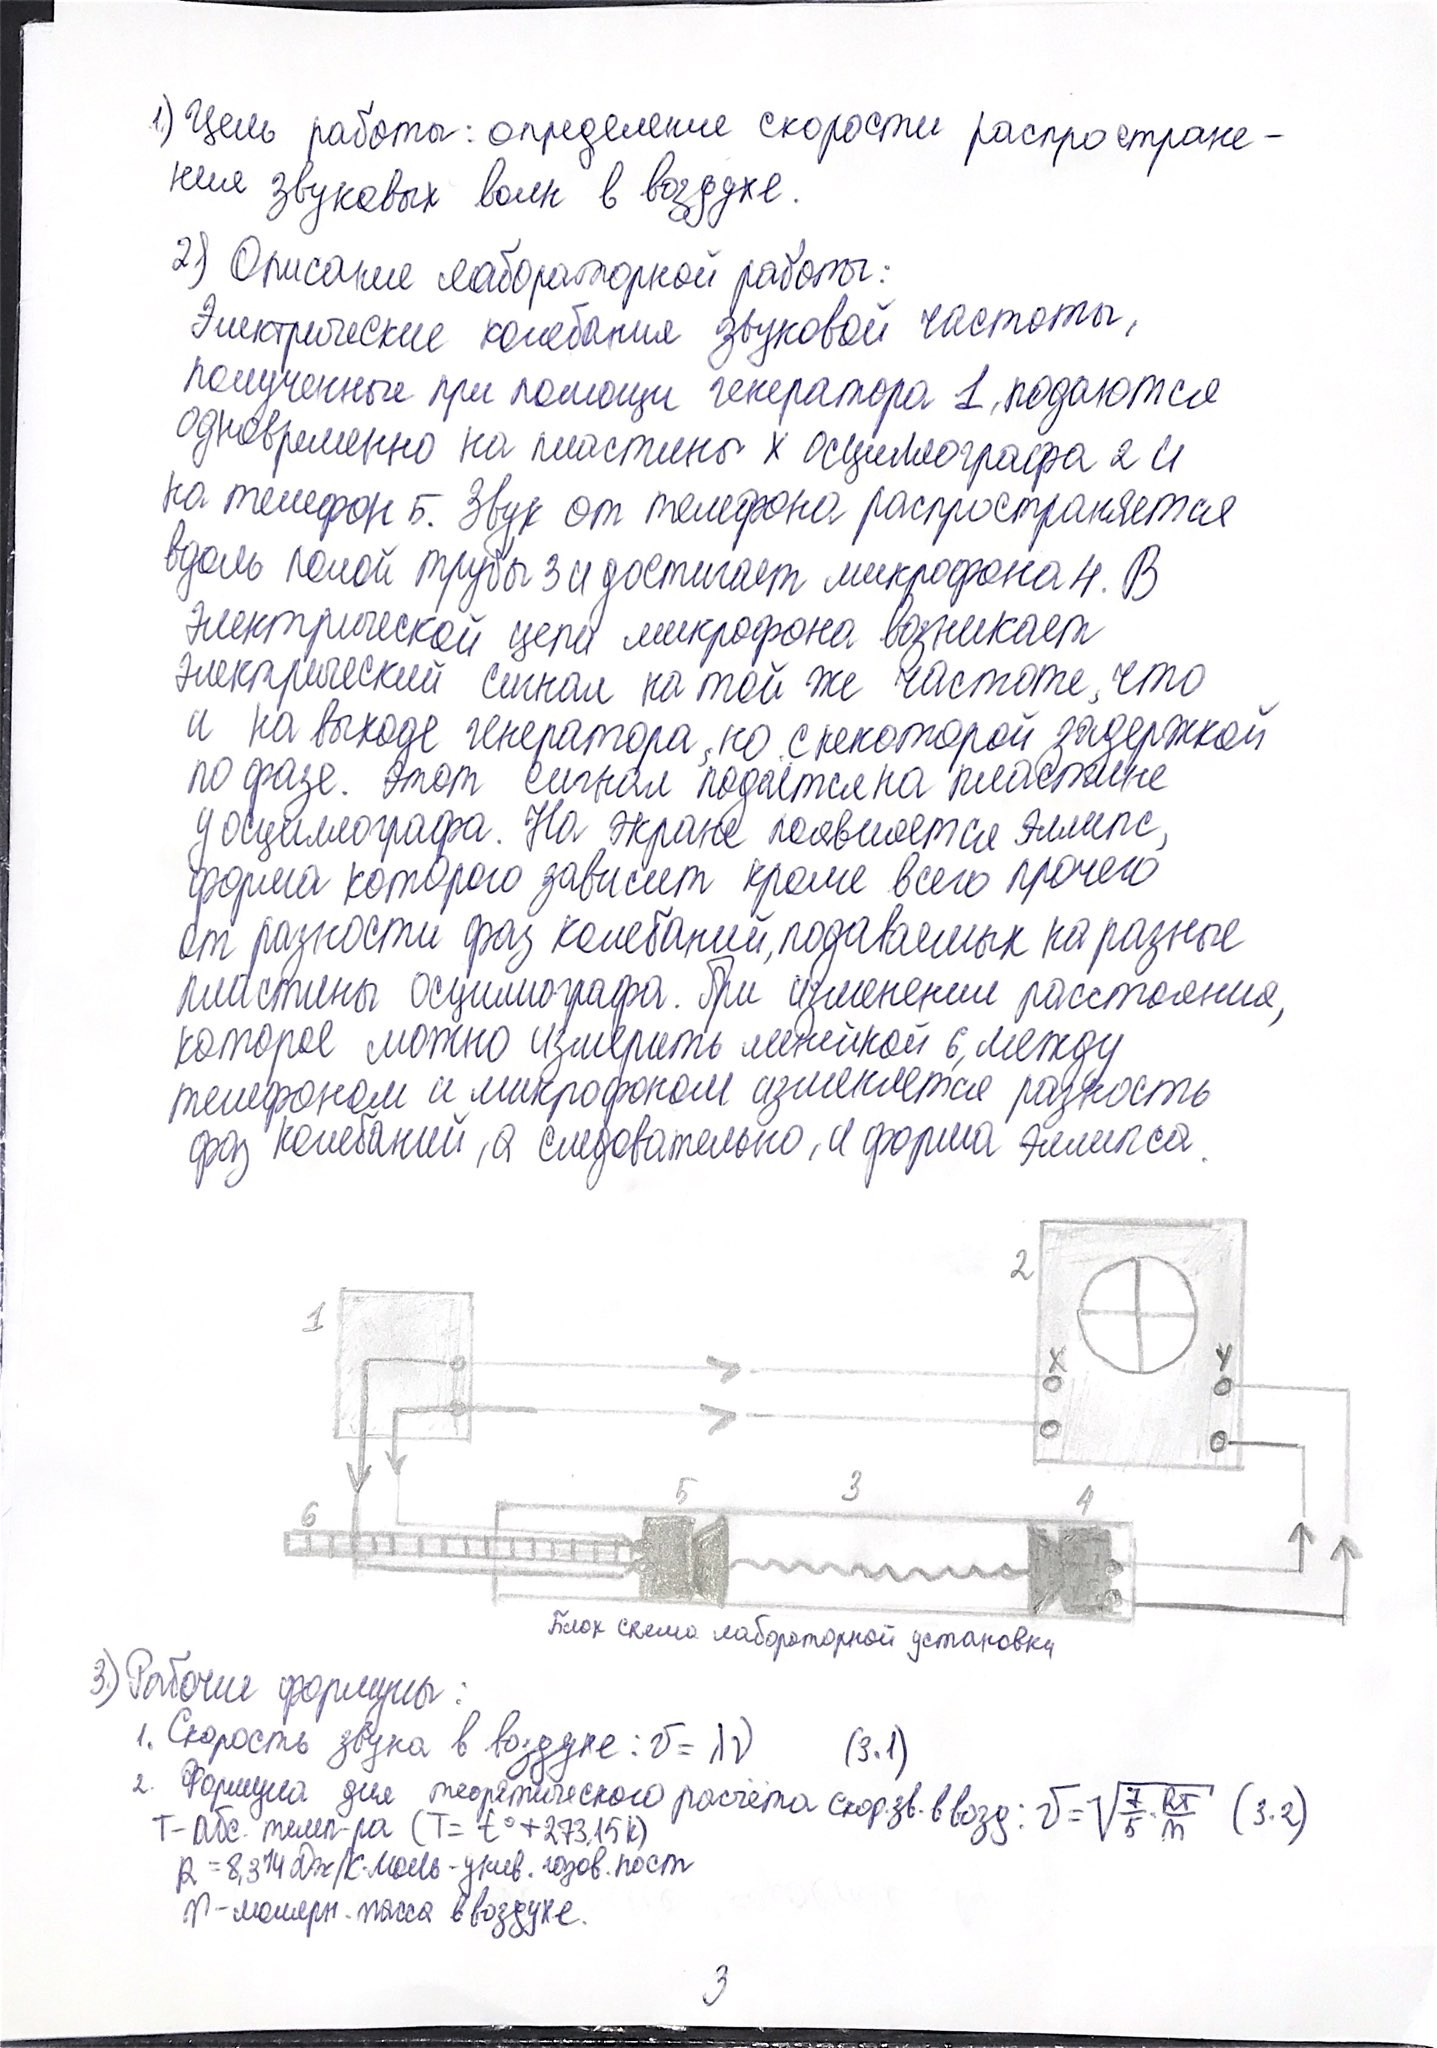 1) Цель работы: определение скорости распростране-
ния звуковых волн в воздухе.
2) Описание лабораторной работы:
Электрические колебания звуковой частоты,
полученные при помощи генератора 1, подаются
одновременно на пластины X осциллографа 2 и
на телефон 5. Звук от телефона распространяется
вдоль полой трубы 3 и достигает микрофона 4. В
электрической цепи микрофона возникает
электрический сигнал на той же частоте, что
и на выходе генератора, но с некоторой задержкой
по фазе. Этот сигнал подаётся на пластине
y осциллографа. На экране появляется эллипс,
форма которого зависит кроме всего прочего
от разности фаз колебаний, подаваемых на разные
пластины осциллографа. При изменении расстояния,
которое можно измерить линейкой 6, между
телефоном и микрофоном изменяется разность
фаз колебаний, а следовательно, и форма эллипса.
2
1
X Y
5 3 4
6
Блок схема лабораторной установки
3.) Рабочие формулы:
1. Скорость звука в воздухе: v = λν (3.1)
2. Формула для теоретического расчёта скор. зв. в возд: v = √(7/5 · RT/m) (3.2)
T - абс. темп-ра (T = t° + 273,15 К)
R = 8,314 Дж/К·моль - унив. газов. пост
m - молярн. масса в воздухе.
3